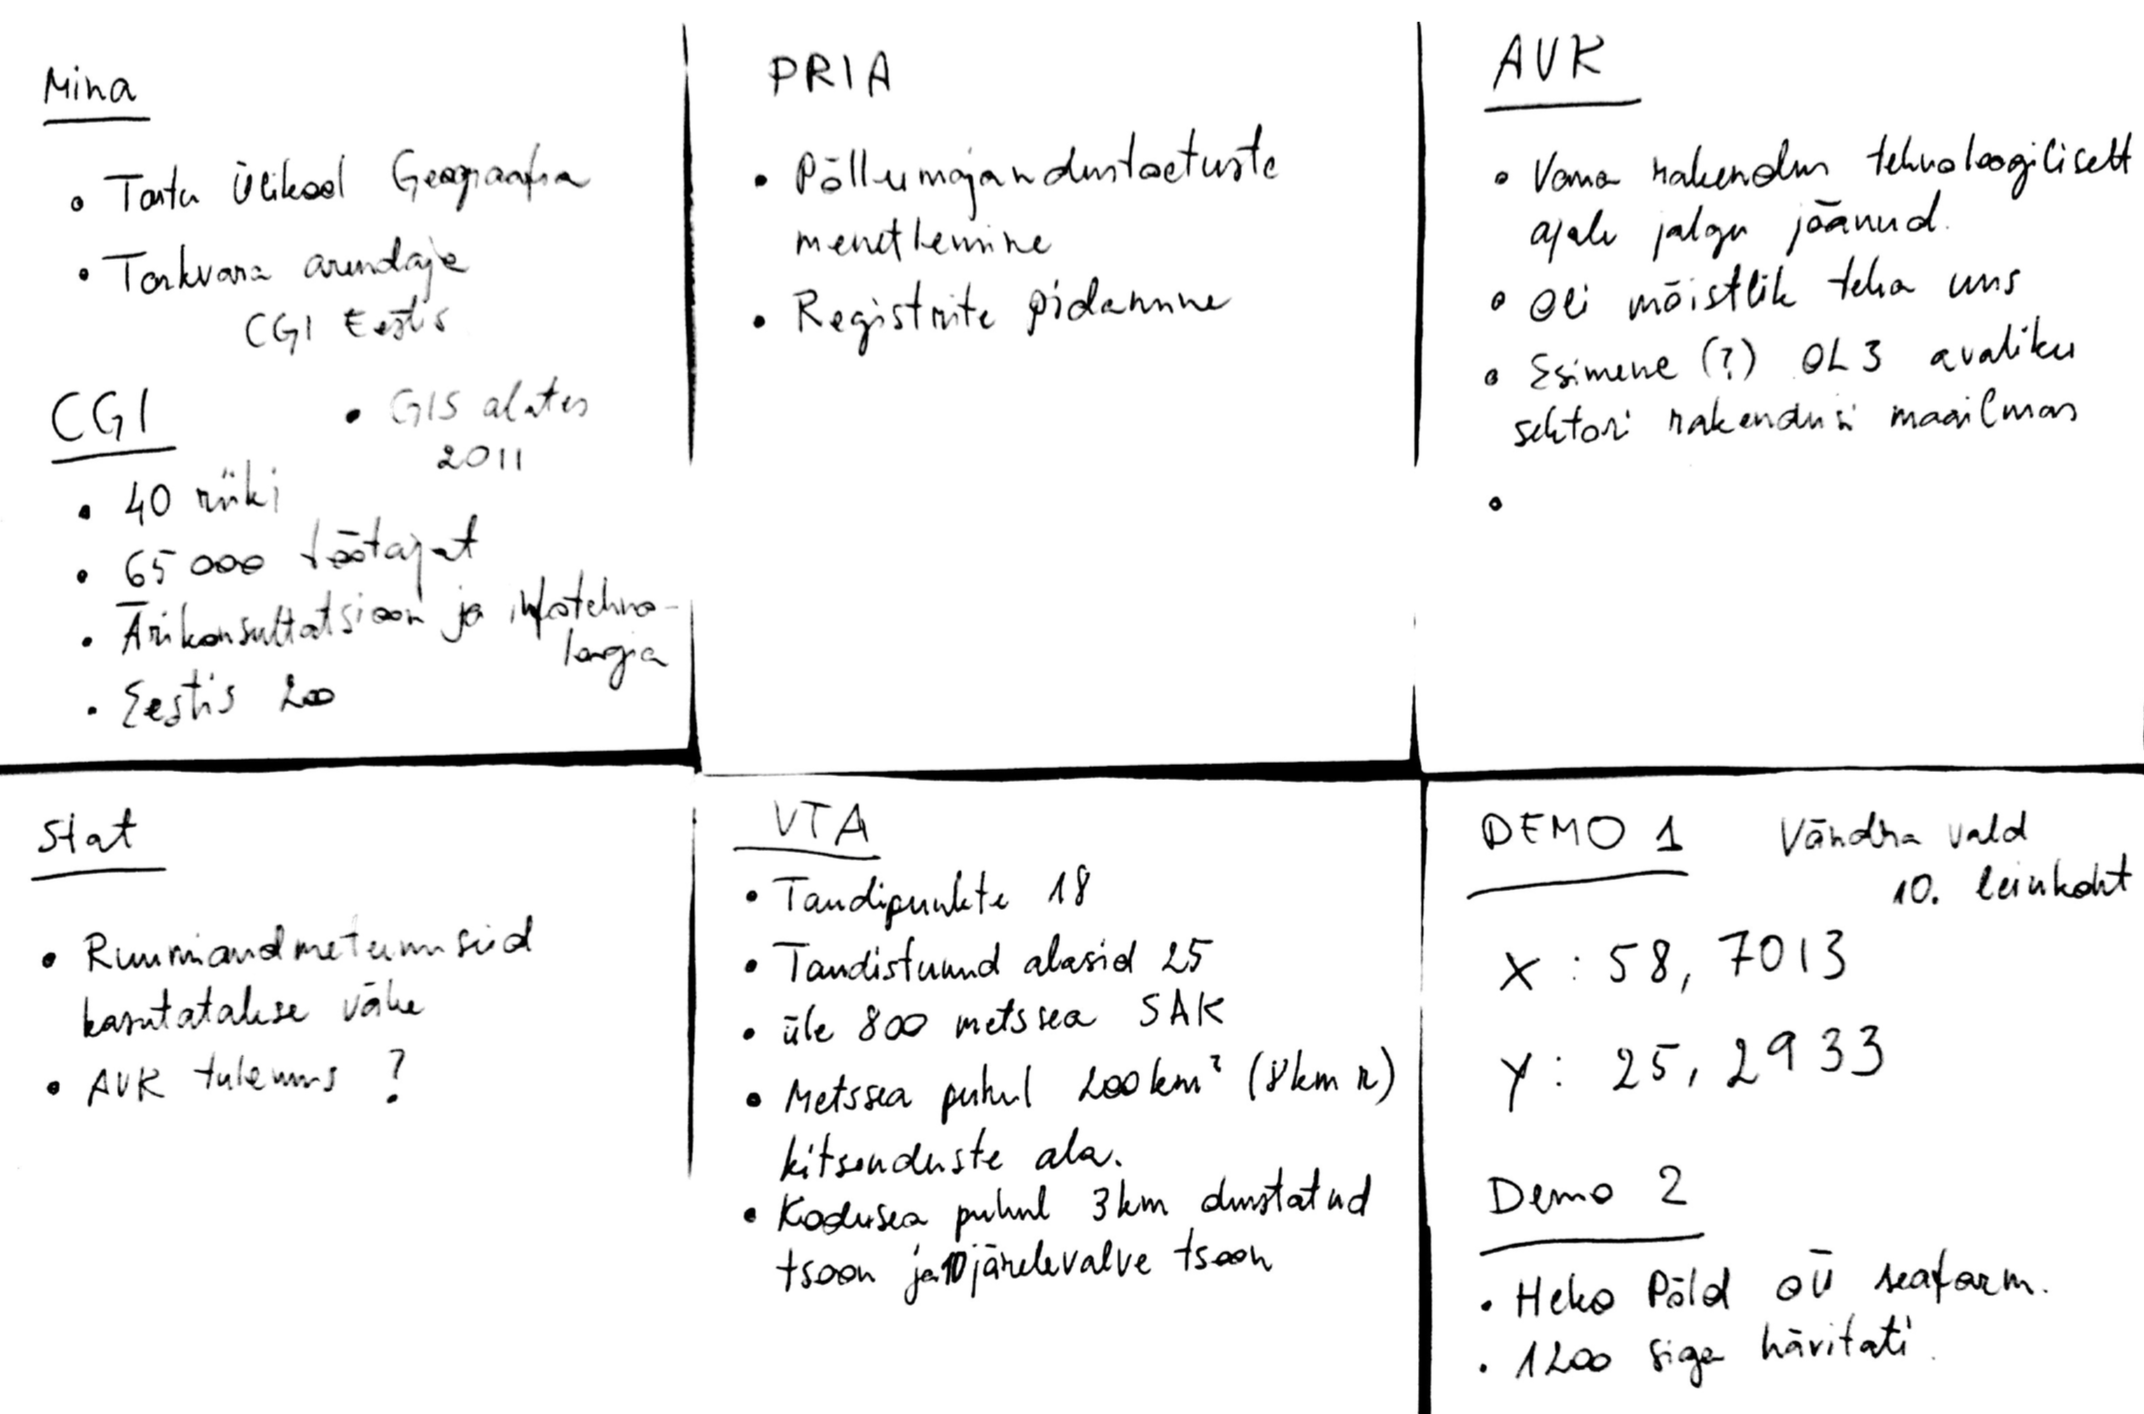 Mina
• Tartu Ülikool Geograafia
• Tarkvara arendaja
CGI Eestis
• GIS alates
2011
CGI
• 40 riiki
• 65000 töötajat
• Ärikonsultatsioon ja infotehno-
loogia
• Eestis 200
PRIA
• Põllumajandustoetuste
menetlemine
• Registrite pidamine
AVK
• Vana rakendus tehnoloogiliselt
ajale jalgu jäänud.
• Oli mõistlik teha uus
• Esimene (?) OL3 avaliku
sektori rakendusi maailmas
•
Stat
• Ruumiandmeteenuseid
kasutatakse vähe
• AVK tulemus ?
VTA
• Taudipunkte 18
• Taudistunud alasid 25
• üle 800 metssea SAK
• Metssea puhul 200 km² (8 km r)
kitsenduste ala.
• Kodusea puhul 3 km ohustatud
tsoon ja 10 järelevalve tsoon
DEMO 1 Vändra vald
10. leiukoht
X : 58,7013
Y : 25,2933
Demo 2
• Heko Põld OÜ seafarm.
• 1200 siga hävitati.